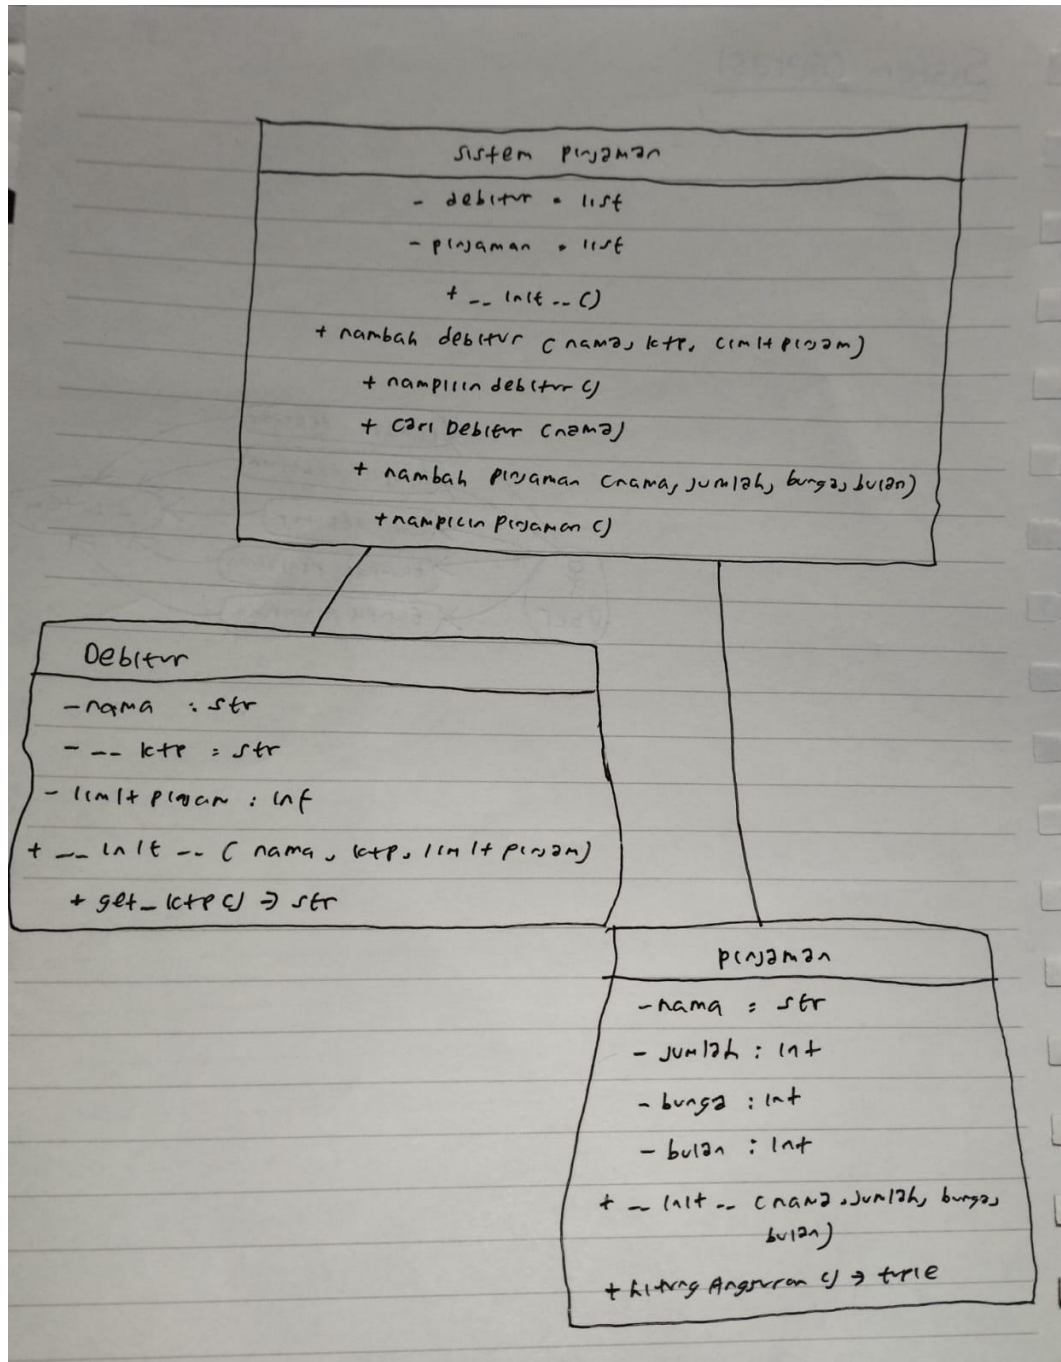 sistem pinjaman
- debitur : list
- pinjaman : list
+ -- init -- ()
+ nambah debitur (nama, ktp, limit pinjam)
+ nampilin debitur ()
+ cari Debitur (nama)
+ nambah pinjaman (nama, jumlah, bunga, bulan)
+ nampilin pinjaman ()
Debitur
- nama : str
- -- ktp : str
- limit pinjam : int
+ -- init -- ( nama, ktp, limit pinjam)
+ get_ktp () → str
pinjaman
- nama : str
- jumlah : int
- bunga : int
- bulan : int
+ -- init -- (nama, jumlah, bunga,
bulan)
+ hitung Angsuran () → tuple